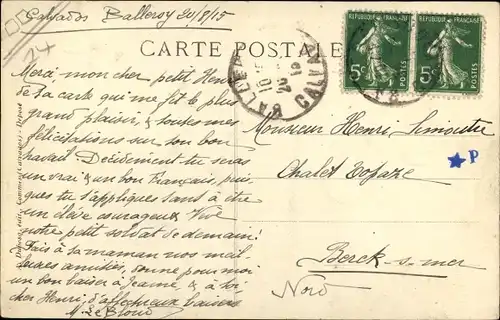 Calvados Balleroy 20/8/15
CARTE POSTALE
Merci mon cher petit Henri
de ta carte qui me fit le plus
grand plaisir, & toutes mes
félicitations sur ton bon
travail Décidément tu es
un vrai & un bon Français, puis
que tu t'appliques tant à être
un élève courageux. Vive
notre petit soldat de demain!
Fais à ta maman nos meil
leures amitiés, donne pour moi
un bon baiser à Jeanne, & à toi
cher Henri, d'affectueux baisers
M. Le Blond
REPUBLIQUE FRANÇAISE
5c
POSTES
REPUBLIQUE FRANÇAISE
5c
POSTES
Monsieur Henri
Chalet Topaze
P
Berck-s-mer
Nord